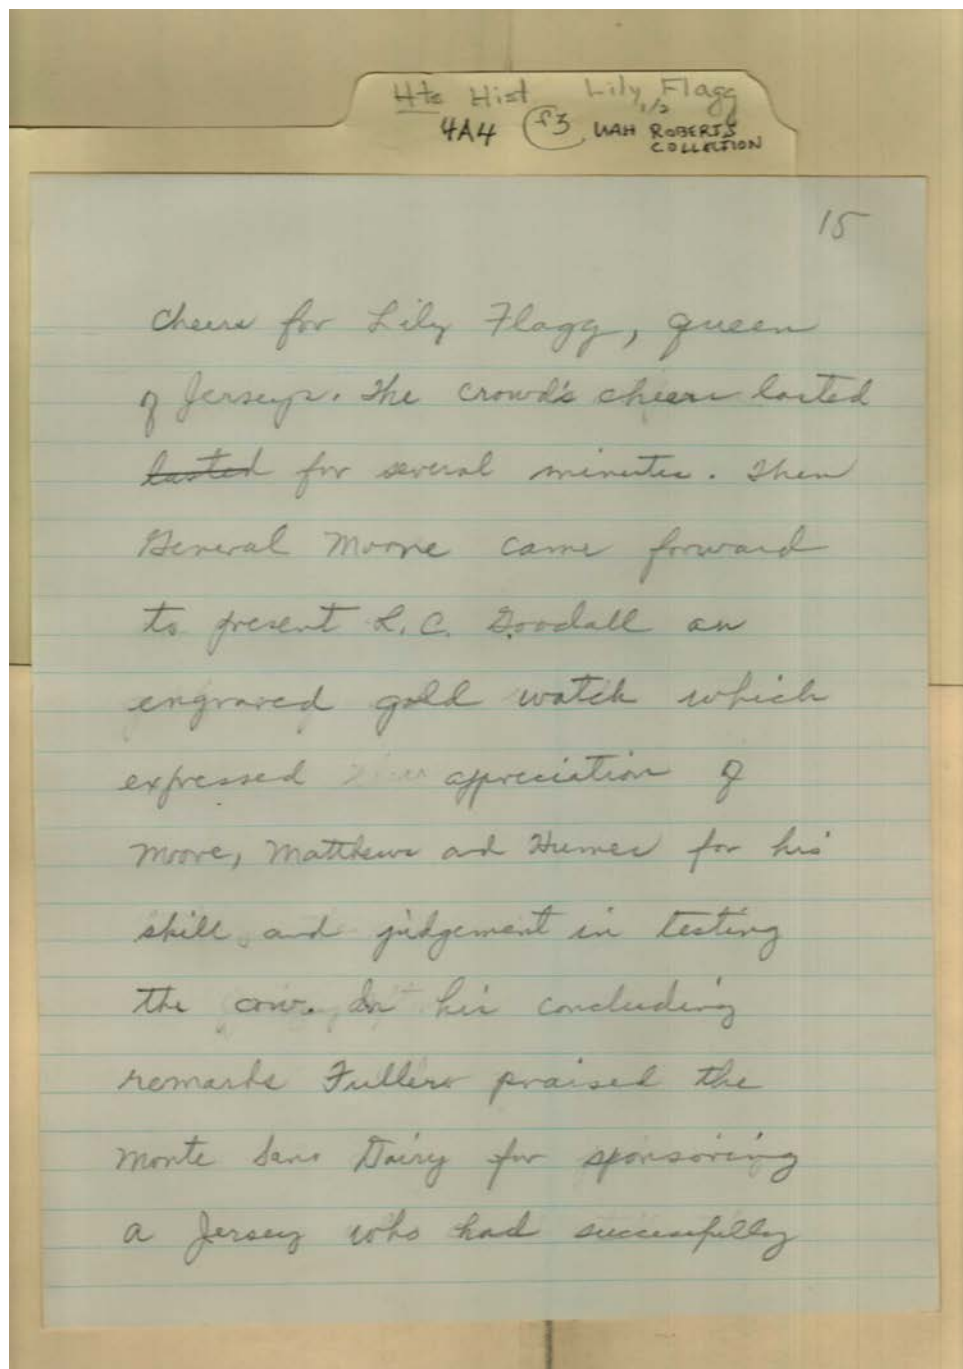 Hts Hist Lily Flagg
1/2
4A4 f3 UAH ROBERTS
COLLECTION
15
cheers for Lily Flagg, queen
of Jerseys. The crowd's cheers lasted
lasted for several minutes. Then
General Moore came forward
to present L. C. Goodall an
engraved gold watch which
expressed appreciation of
Moore, Matthews and Humes for his
skill and judgement in testing
the cow. In his concluding
remarks Fullero praised the
Monte Sano Dairy for sponsoring
a Jersey who had successfully